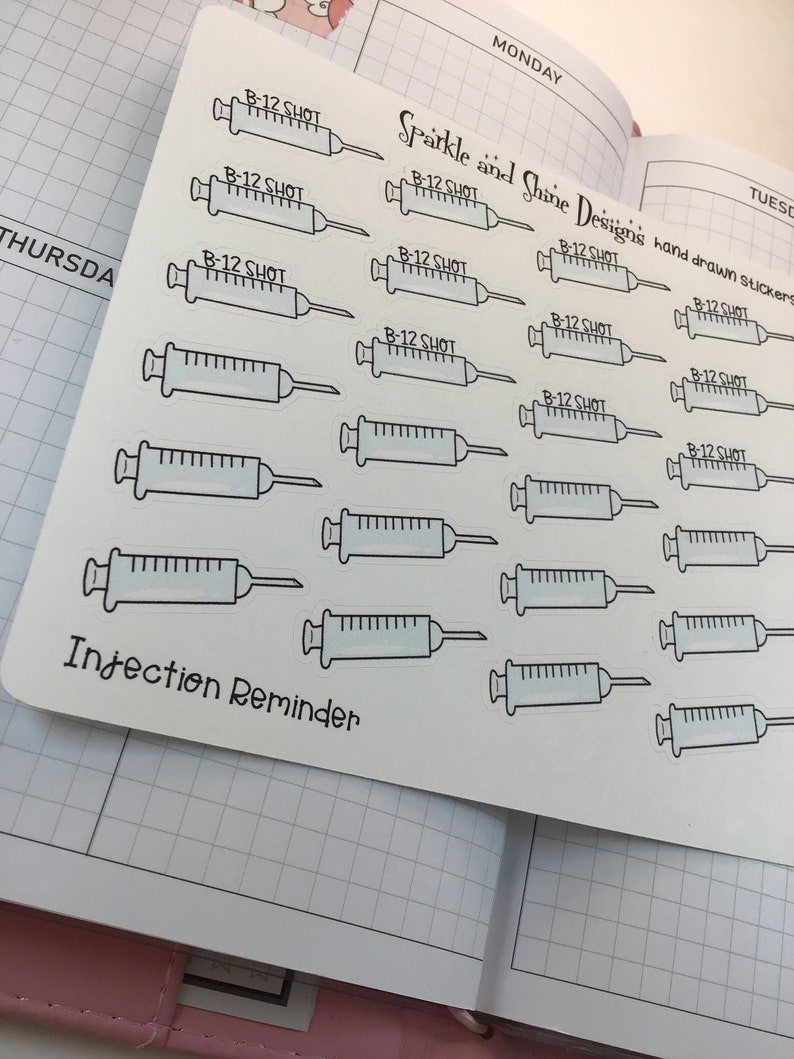 MONDAY
TUESD
THURSDA
Sparkle and Shine Designs hand drawn stickers
B-12 SHOT
B-12 SHOT
B-12 SHOT
B-12 SHOT
B-12 SHOT
B-12 SHOT
B-12 SHOT
B-12 SHOT
B-12 SHOT
B-12 SHOT
B-12 SHOT
B-12 SHOT
Injection Reminder